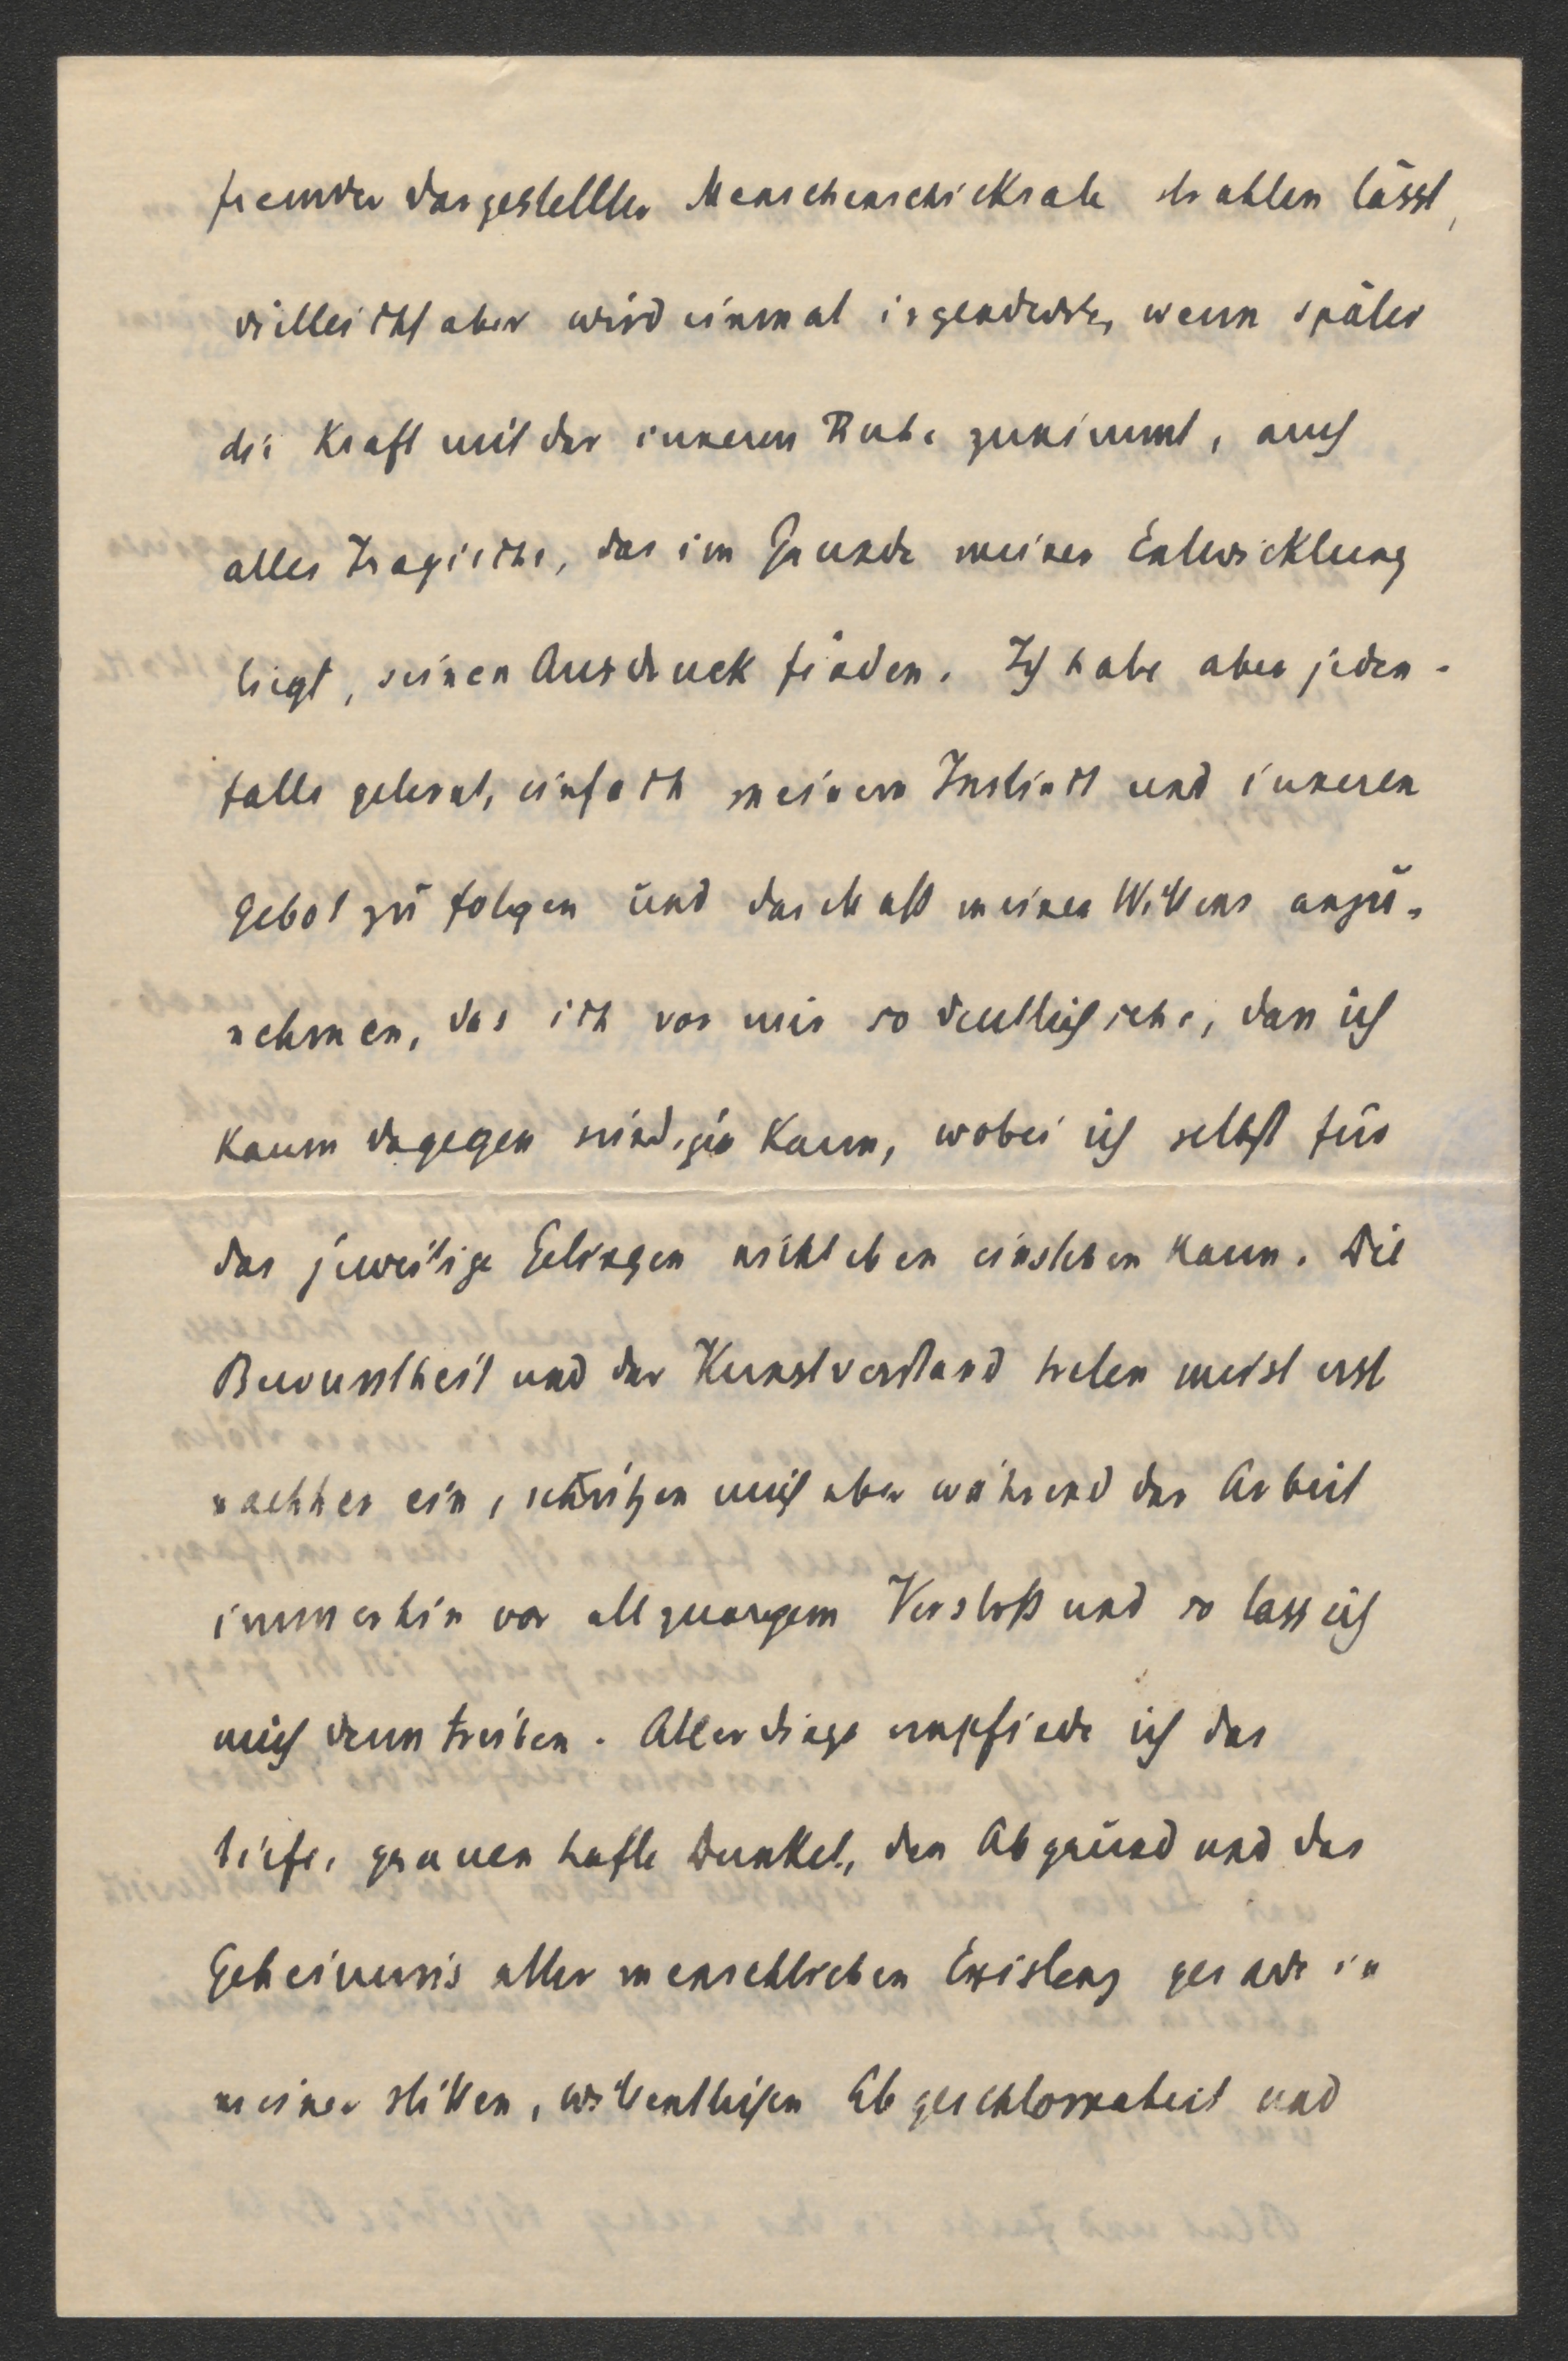 fremder dargestellter Menschenschicksale strahlen lässt,
vielleicht aber wird einmal irgendwie, wenn später
die Kraft mit der inneren Ruhe zunimmt, auch
alles Tragische, das im Grunde meiner Entwicklung
liegt, seinen Ausdruck finden. Ich habe aber jeden-
falls gelernt, einfach meinem Instinct und inneren
Gebot zu folgen und das Maß meines Willens anzu-
nehmen, das ich vor mir so deutlich sehe, dass ich
kaum dagegen sündigen kann, wobei ich selbst für
das jeweilige Gelingen nicht eben einstehen kann. Die
Bewusstheit und der Kunstverstand treten meist erst
nachher ein, schützen mich aber während der Arbeit
immerhin vor allzuargem Verstoß und so lass ich
mich denn treiben. Allerdings empfinde ich das
tiefe, grauenhafte Dunkel, den Abgrund und das
Geheimnis aller menschlichen Existenz gerade in
meiner stillen, willentlichen Abgeschlossenheit und